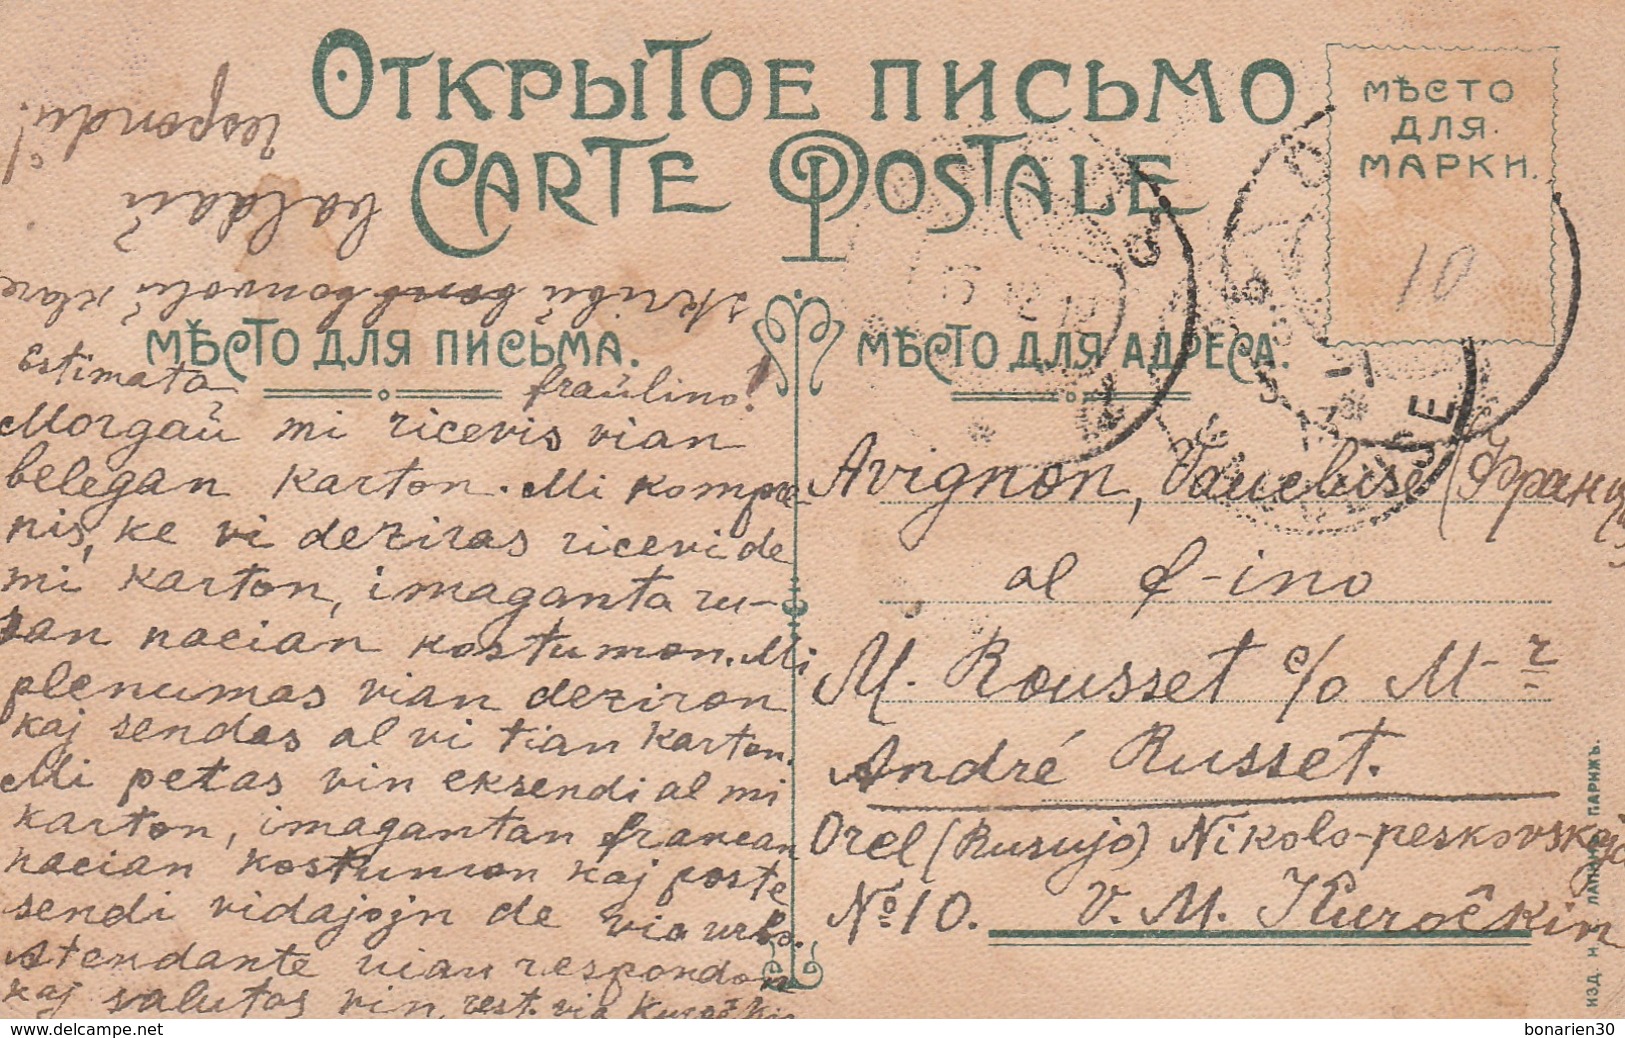 ОТКРЫТОЕ ПИСЬМО
CARTE POSTALE
МѢСТО
ДЛЯ
МАРКИ.
10
МѢСТО ДЛЯ ПИСЬМА.
МѢСТО ДЛЯ АДРЕСА.
Estimata fraŭlino!
Morgaŭ mi ricevis vian
belegan karton. Mi kompre
nis, ke vi deziras ricevi de
mi karton, imaganta ru-
san nacian kostumon. Mi
plenumas vian deziron
kaj sendas al vi tian karton.
Mi petas vin eksendi al mi
karton, imagantan francan
nacian kostumon kaj poste
sendi vidajojn de via urbo.
Atendante vian respondon
kaj salutas vin, rest. via Kuroĉkin
skribu bonvolu klare
baldaŭ
respondu!
Avignon, Vaucluse (Франц
al f-ino
M. Rousset c/o M-r
André Russet.
Orel (Rusujo) Nikolo-peskovskaja
№10. V. M. Kuroĉkin
ИЗД. И. ЛАПИНА ПАРИЖЪ.
bonarien30
www.delcampe.net